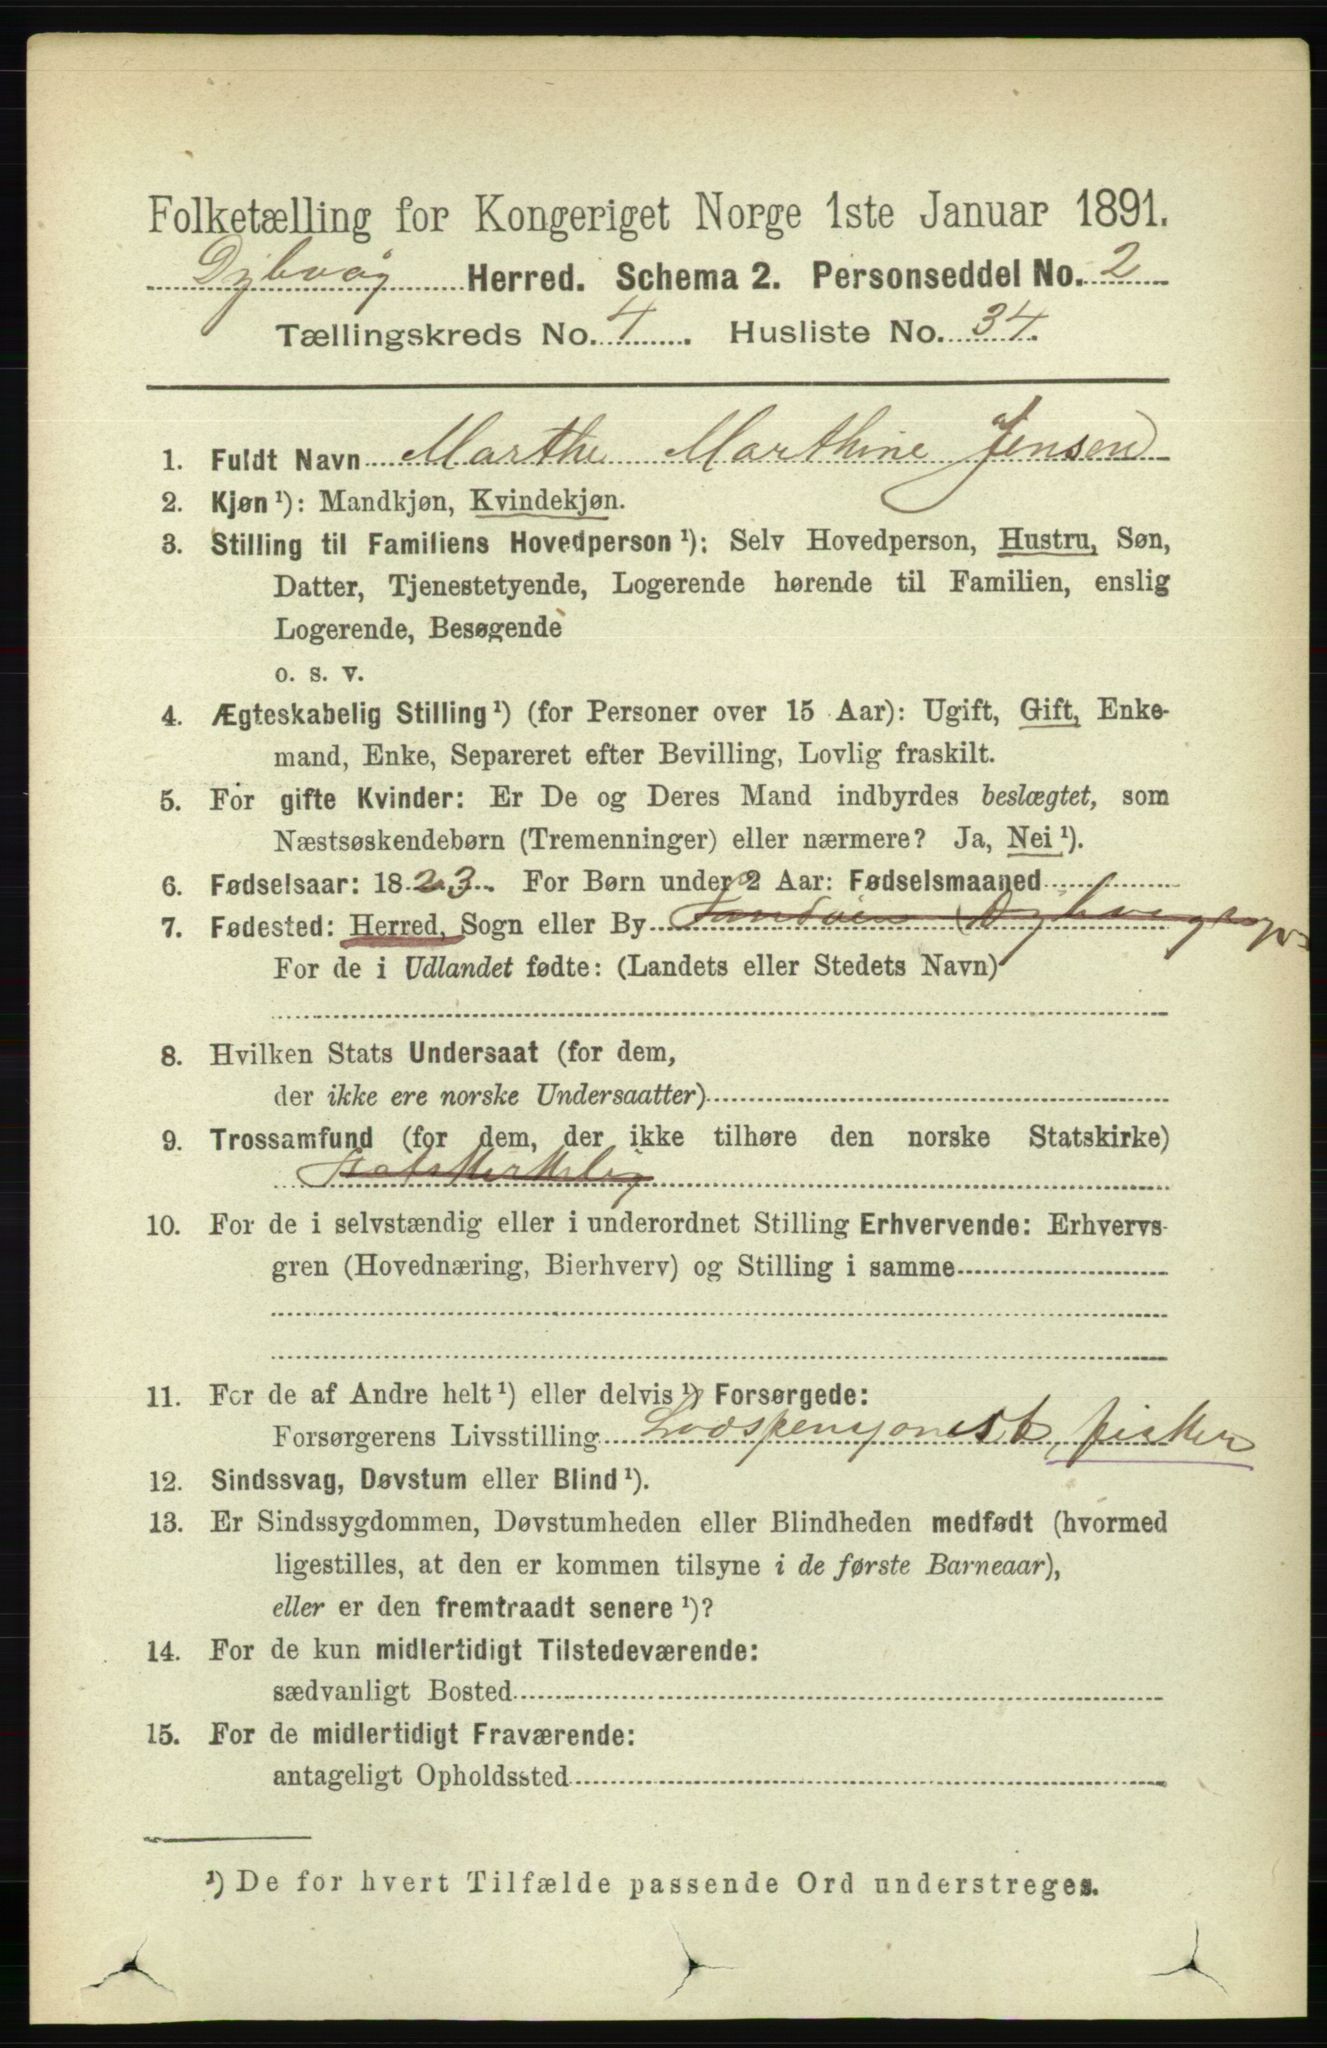 Folketælling for Kongeriget Norge 1ste Januar 1891.
Dybvåg Herred. Schema 2. Personseddel No. 2
Tællingskreds No. 4. Husliste No. 34.
1. Fuldt Navn Marthe Marthine Jensen
2. Kjøn ¹): Mandkjøn, Kvindekjøn.
3. Stilling til Familiens Hovedperson ¹): Selv Hovedperson, Hustru, Søn,
Datter, Tjenestetyende, Logerende hørende til Familien, enslig
Logerende, Besøgende
o. s. v.
4. Ægteskabelig Stilling ¹) (for Personer over 15 Aar): Ugift, Gift, Enke-
mand, Enke, Separeret efter Bevilling, Lovlig fraskilt.
5. For gifte Kvinder: Er De og Deres Mand indbyrdes beslægtet, som
Næstsøskendebørn (Tremenninger) eller nærmere? Ja, Nei ¹).
6. Fødselsaar: 1823. For Børn under 2 Aar: Fødselsmaaned
7. Fødested: Herred, Sogn eller By Sandøen
For de i Udlandet fødte: (Landets eller Stedets Navn)
8. Hvilken Stats Undersaat (for dem,
der ikke ere norske Undersaatter)
9. Trossamfund (for dem, der ikke tilhøre den norske Statskirke)
Statskirkelig
10. For de i selvstændig eller i underordnet Stilling Erhvervende: Erhvervs-
gren (Hovednæring, Bierhverv) og Stilling i samme
11. For de af Andre helt ¹) eller delvis ¹) Forsørgede:
Forsørgerens Livsstilling Lodspensjonist, fisker
12. Sindssvag, Døvstum eller Blind ¹).
13. Er Sindssygdommen, Døvstumheden eller Blindheden medfødt (hvormed
ligestilles, at den er kommen tilsyne i de første Barneaar),
eller er den fremtraadt senere ¹)?
14. For de kun midlertidigt Tilstedeværende:
sædvanligt Bosted
15. For de midlertidigt Fraværende:
antageligt Opholdssted
¹) De for hvert Tilfælde passende Ord understreges.